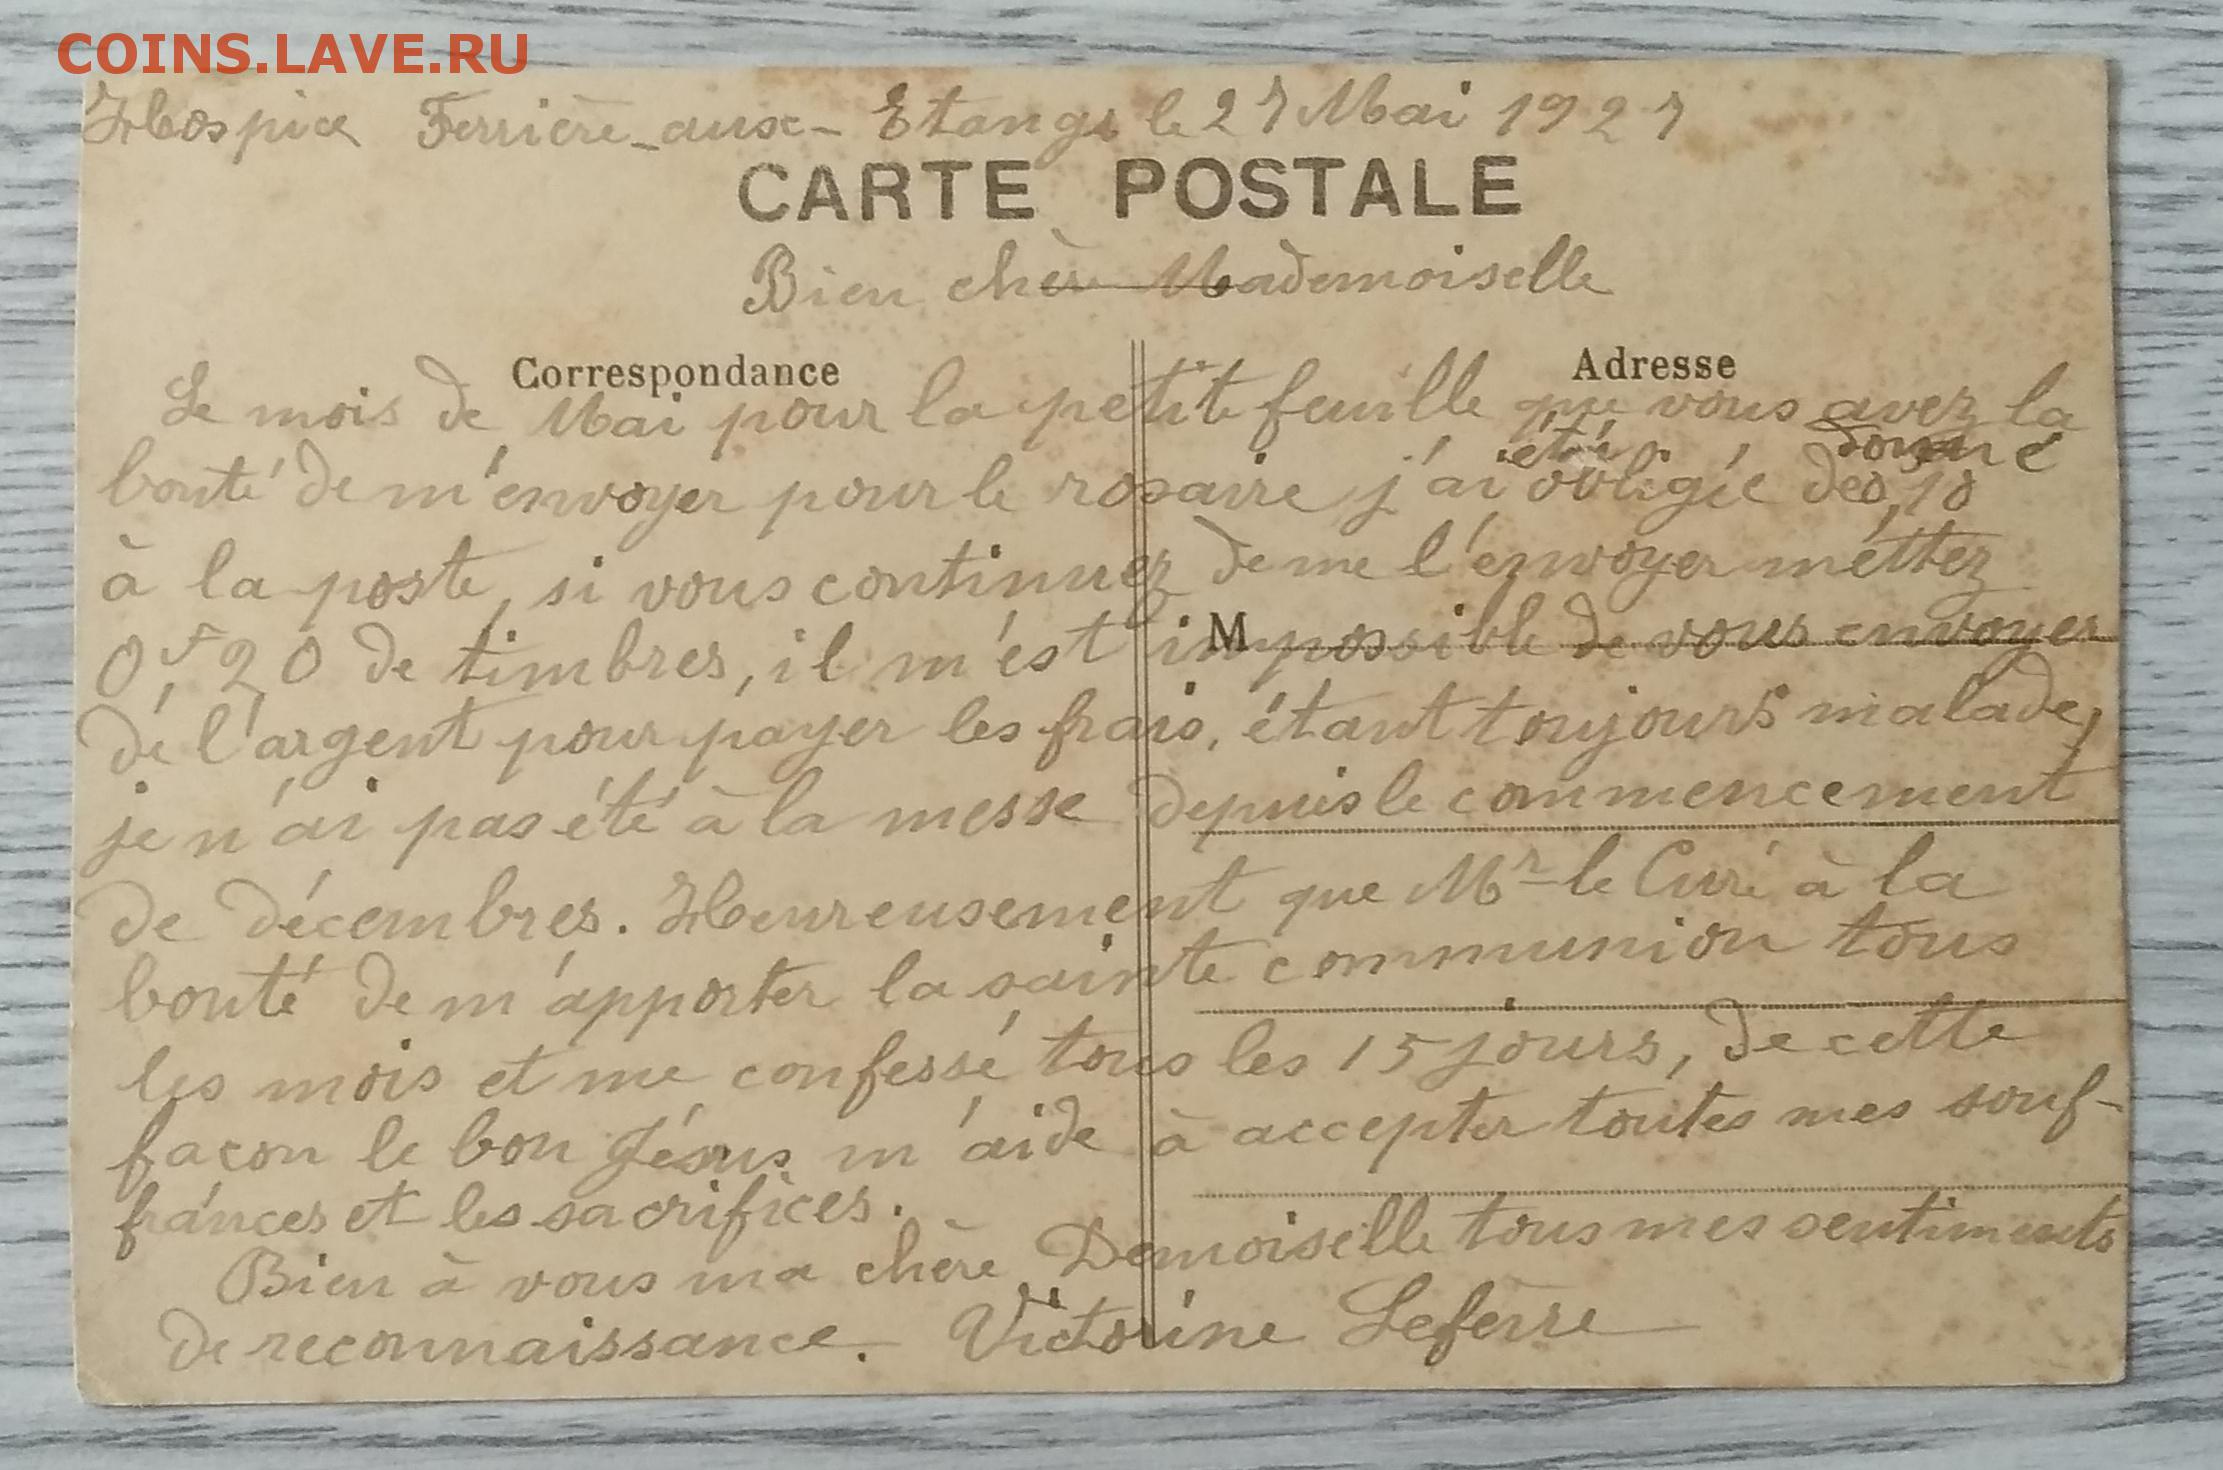 COINS.LAVE.RU
Hospice Ferrière-aux-Etangs le 27 Mai 1927
CARTE POSTALE
Bien chère Mademoiselle
Correspondance
Adresse
Le mois de Mai pour la petite feuille que vous avez la
bonté de m'envoyer pour le rosaire j'ai été obligée donné 10
à la poste, si vous continuez de me l'envoyer mettez
0,f20 de timbres, il m'est impossible de vous envoyer
M
de l'argent pour payer les frais, étant toujours malade,
je n'ai pas été à la messe depuis le commencement
de décembres. Heureusement que Mr le Curé à la
bonté de m'apporter la sainte communion tous
les mois et me confessé tous les 15 jours, de cette
façon le bon Jésus m'aide à accepter toutes mes souf-
frances et les sacrifices.
Bien à vous ma chère Demoiselle tous mes sentiments
de reconnaissance. Victorine